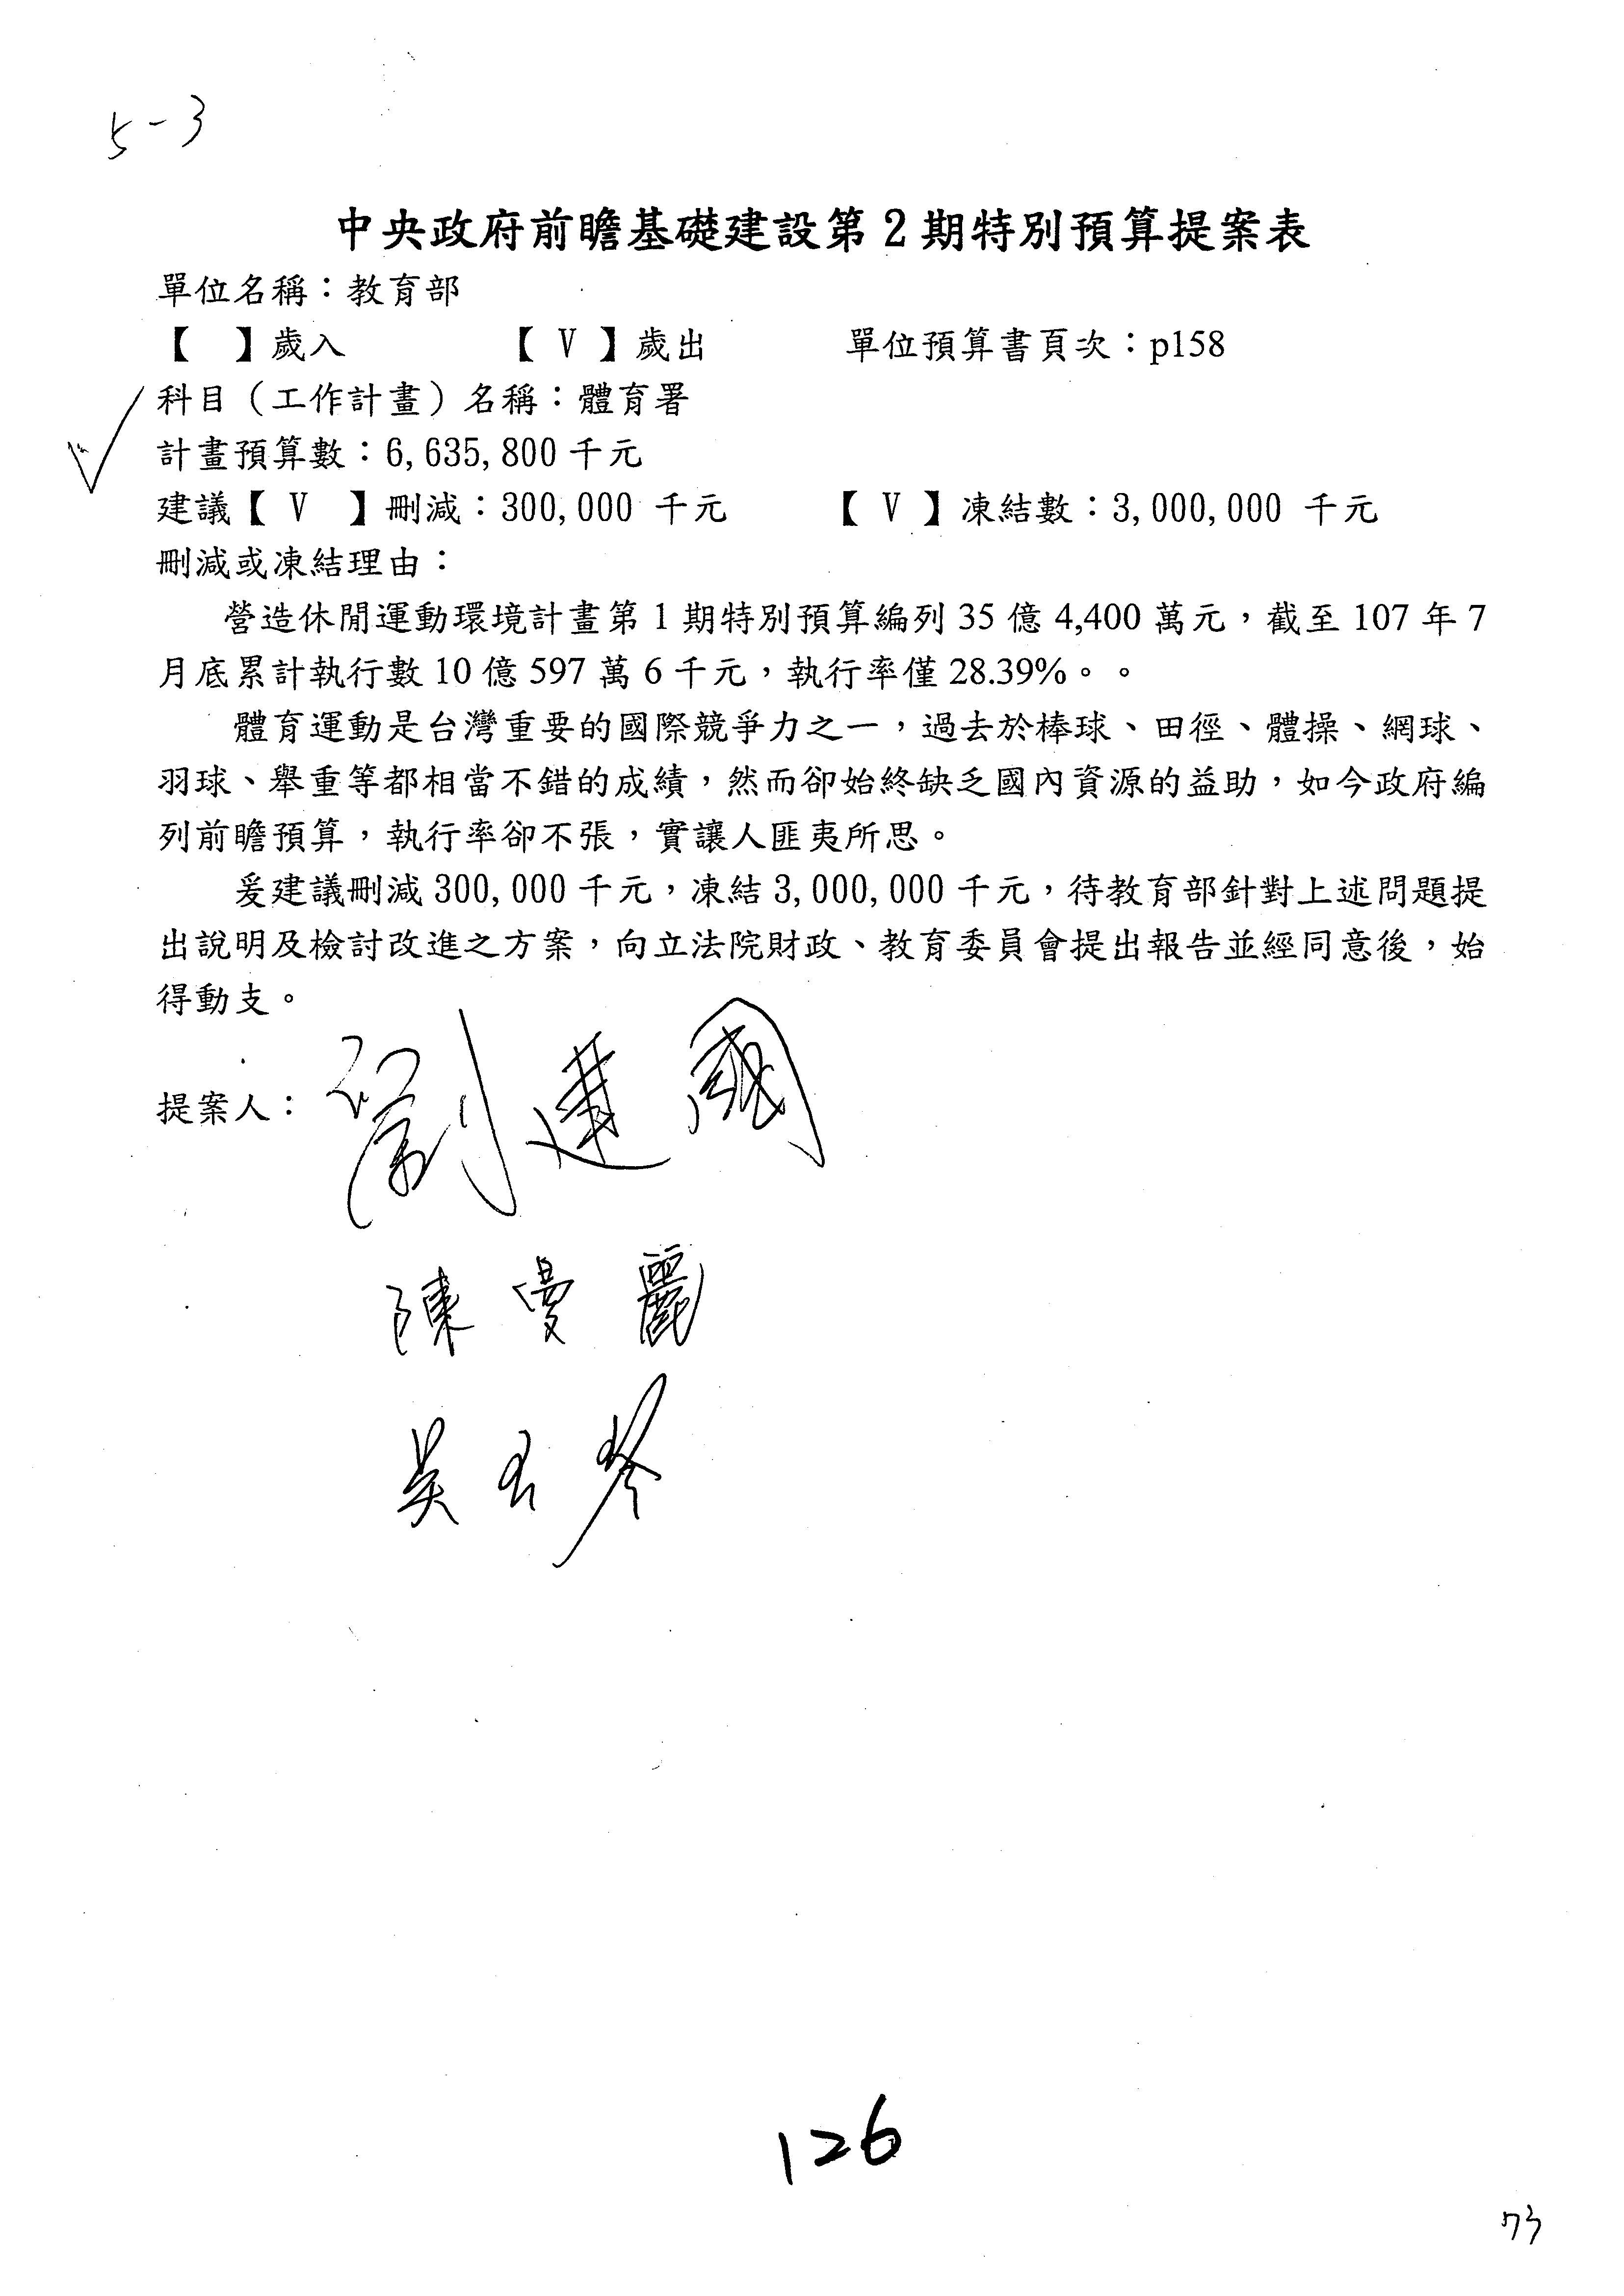 5-3
中央政府前瞻基礎建設第2期特別預算提案表
單位名稱：教育部
【　】歲入　　【 V 】歲出　　單位預算書頁次：p158
科目（工作計畫）名稱：體育署
計畫預算數：6,635,800 千元
建議【 V 】刪減：300,000 千元　　【 V 】凍結數：3,000,000 千元
刪減或凍結理由：
營造休閒運動環境計畫第 1 期特別預算編列 35 億 4,400 萬元，截至 107 年 7
月底累計執行數 10 億 597 萬 6 千元，執行率僅 28.39%。。
體育運動是台灣重要的國際競爭力之一，過去於棒球、田徑、體操、網球、
羽球、舉重等都相當不錯的成績，然而卻始終缺乏國內資源的益助，如今政府編
列前瞻預算，執行率卻不張，實讓人匪夷所思。
爰建議刪減 300,000 千元，凍結 3,000,000 千元，待教育部針對上述問題提
出說明及檢討改進之方案，向立法院財政、教育委員會提出報告並經同意後，始
得動支。
提案人：劉建國
陳曼麗
吳玉琴
126
73